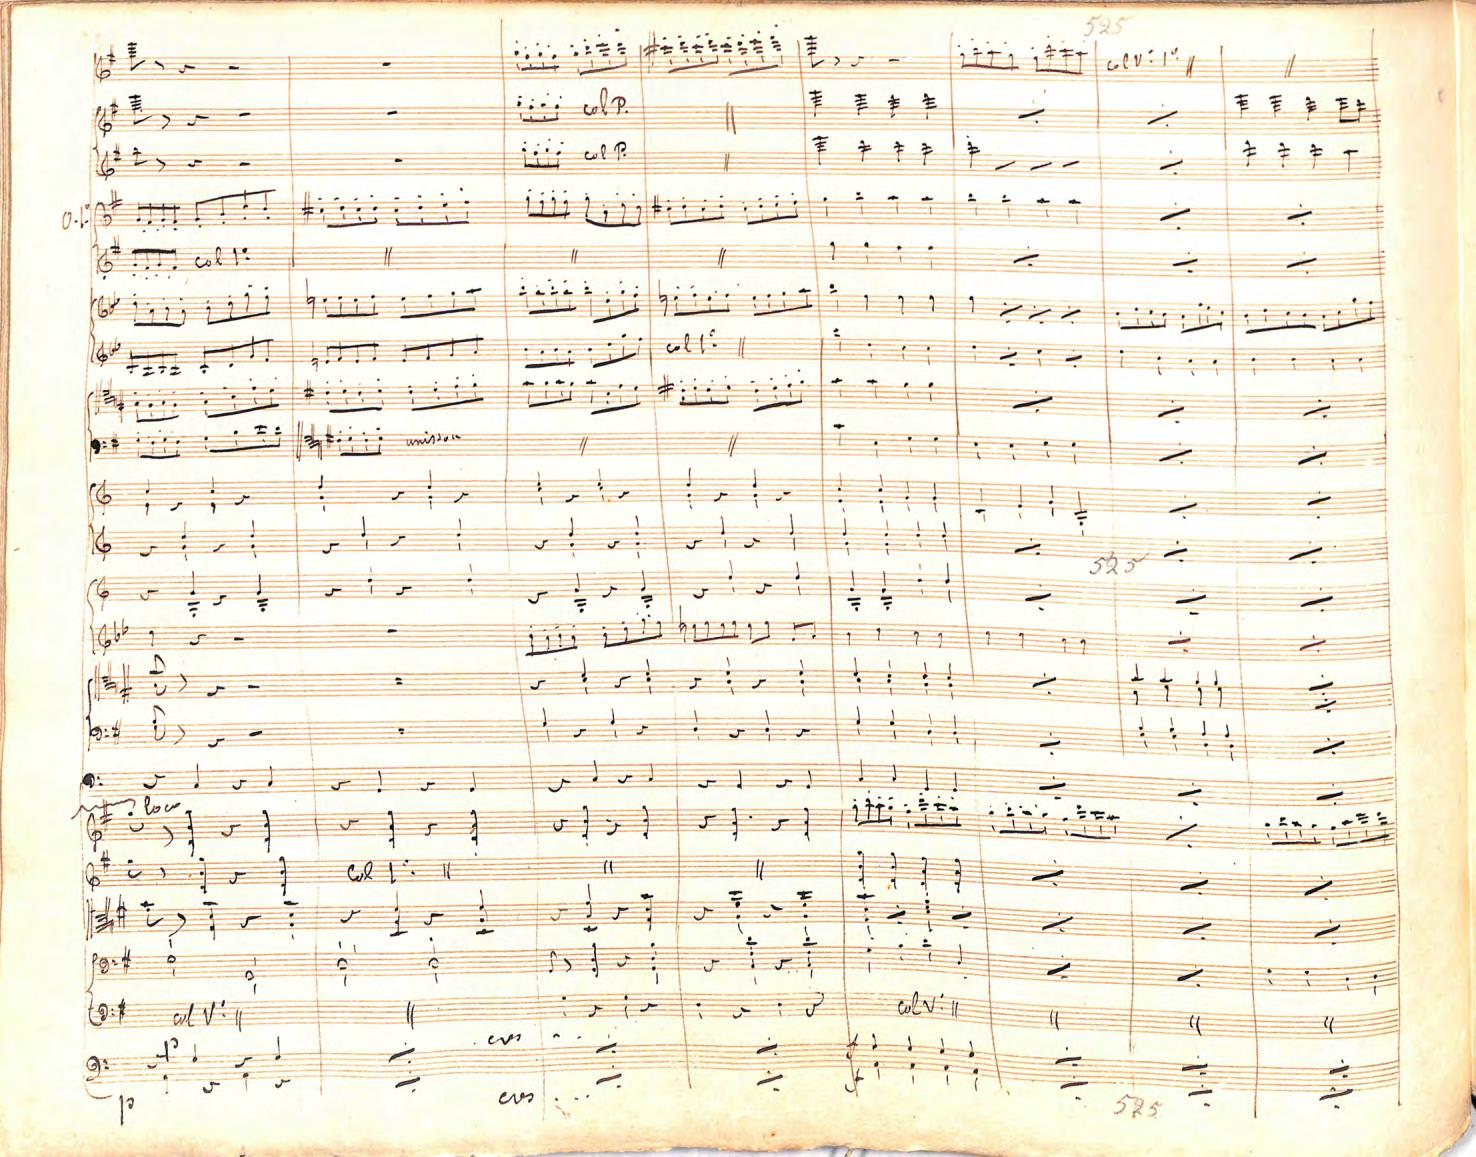 525
col Vº: 1º
col P.
col P.
O. 1º
col 1º
col 1º
unisson
525
loco
Col 1º:
col Vº:
col Vº:
p
cres
p
cres
525